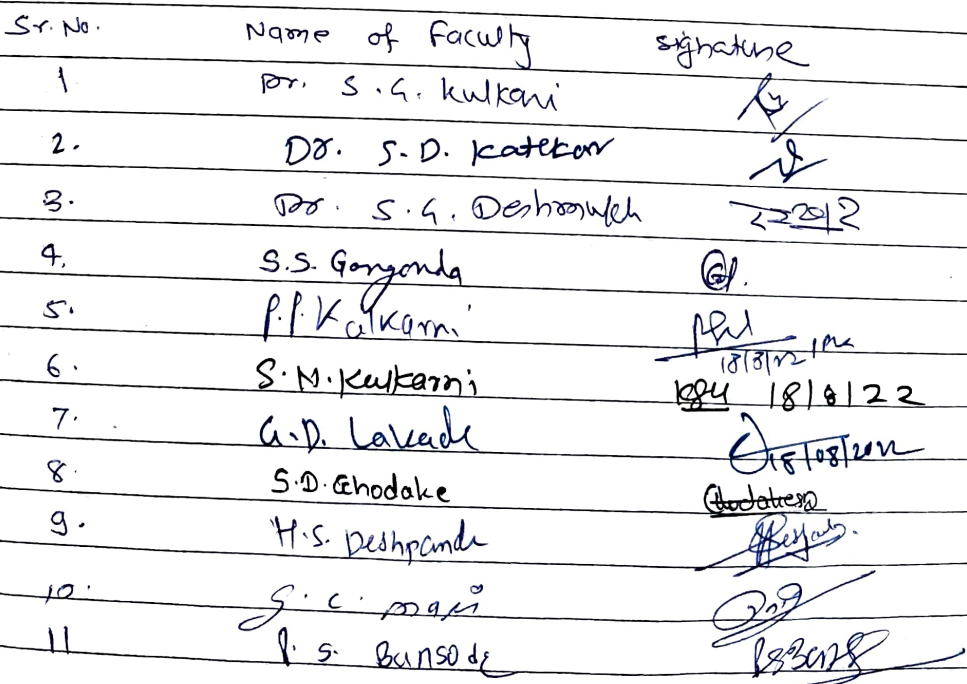 Sr. No. Name of Faculty signature
1 Dr. S.G. Kulkani
2. Dr. S.D. Katekar
3. Dr. S.G. Deshmukh
4. S.S. Gongonda
5. P.P. Kalkarni
18/8/22
6. S.N. Kulkarni 18/8/22
7. G.D. Lakade 18/08/2022
8. S.D. Ghodake Ghodakesd
9. H.S. Deshpande
10. S.C. mali
11 P.S. Bansode